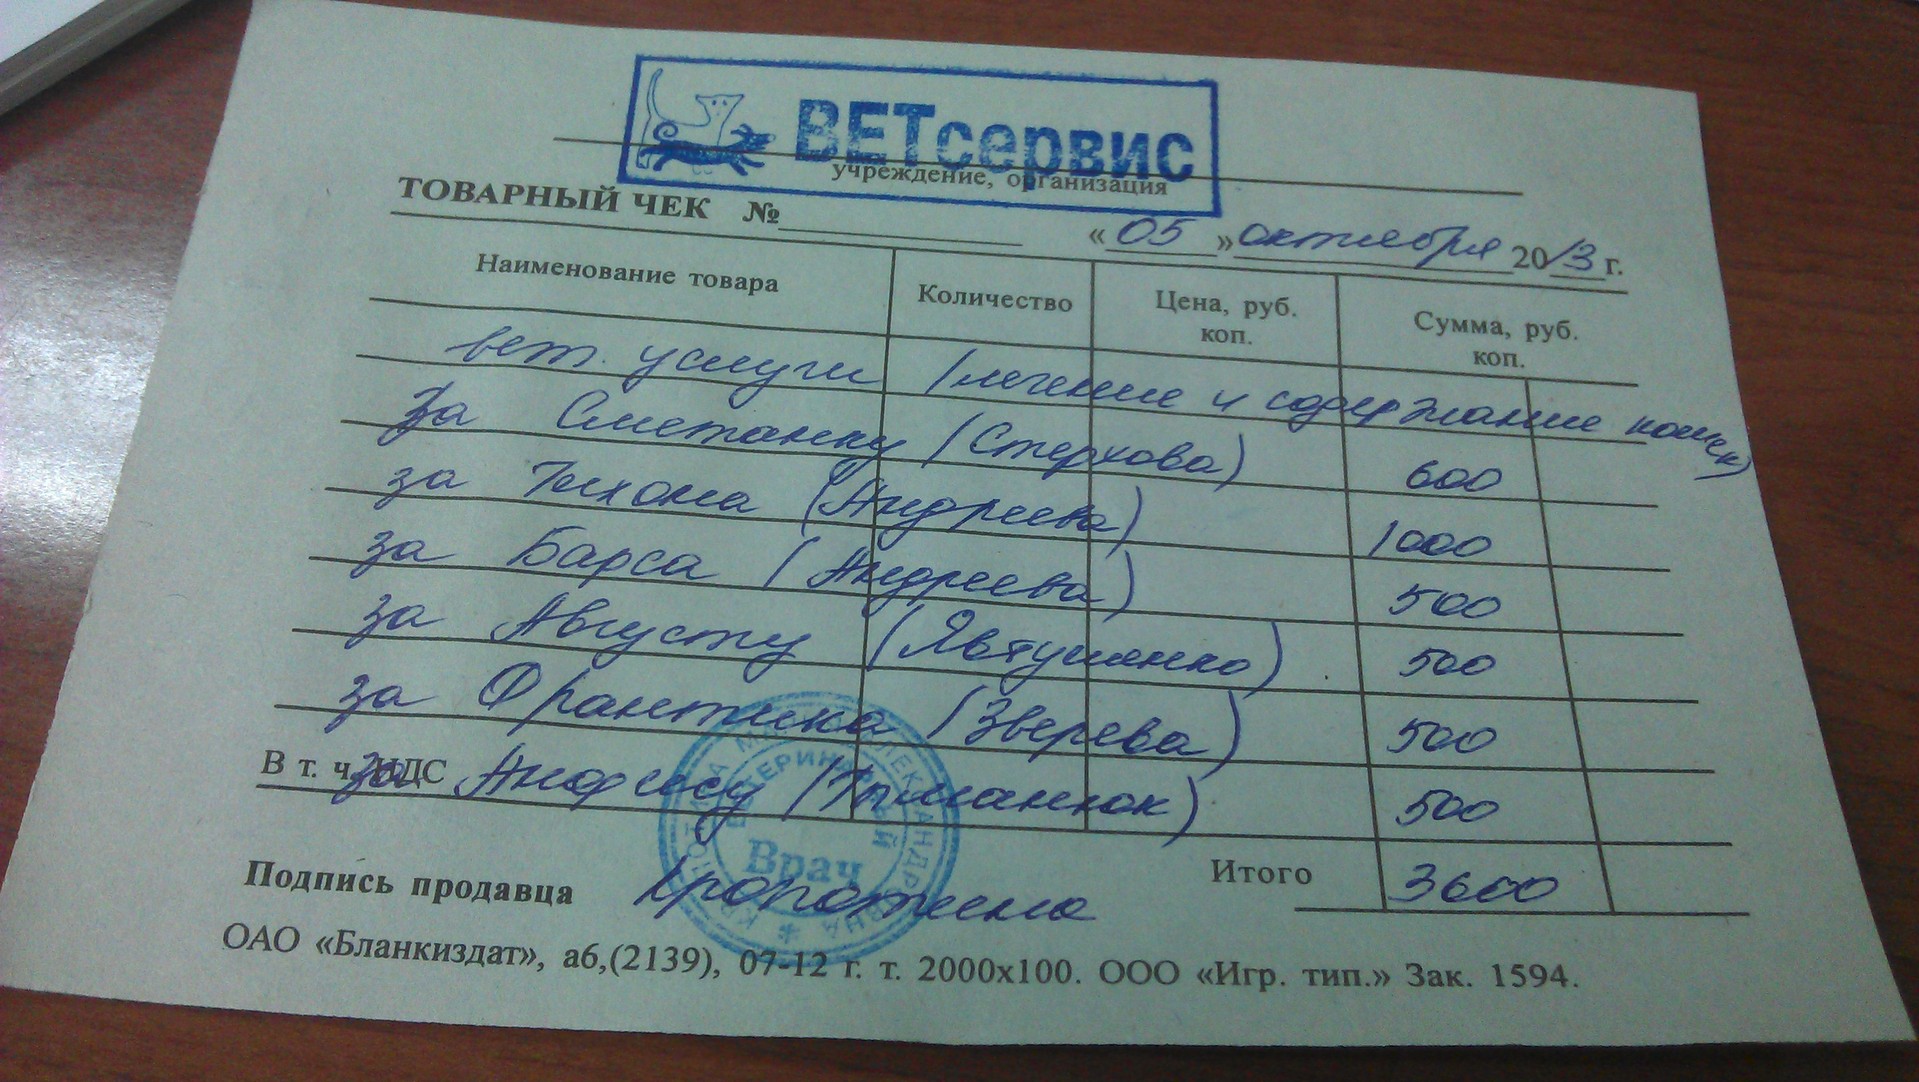 ВЕТсервис
учреждение, организация
ТОВАРНЫЙ ЧЕК №
«05» октября 2013 г.
Наименование товара Количество Цена, руб. коп. Сумма, руб. коп.
вет. услуги (лечение и содержание кошек)
за Сметанку (Стерхова) 600
за Тихона (Андреева) 1000
за Барса (Андреева) 500
за Августу (Явтушенко) 500
за Франтика (Зверева) 500
В т. ч. НДС
за (Тыманюк) 500
Итого 3600
Подпись продавца Кропоткина
ВЕТЕРИНАРНЫЙ
Врач
ОАО «Бланкиздат», а6,(2139), 07-12 г. т. 2000х100. ООО «Игр. тип.» Зак. 1594.